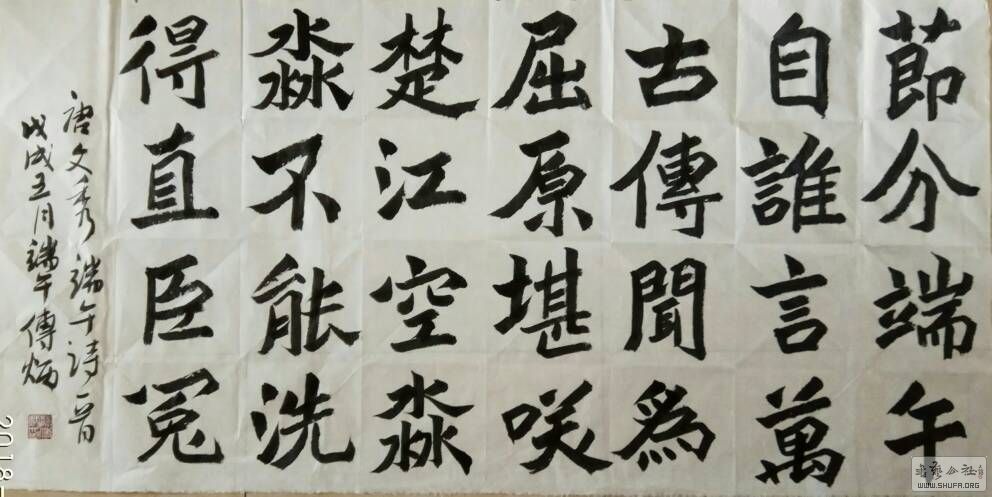 節分端午
自誰言萬
古傳聞為
屈原堪咲
楚江空淼
淼不能洗
得直臣冤
唐文秀端午詩一首
戊戌五月端午傅炳
2018-
書藝公社
WWW.SHUFA.ORG